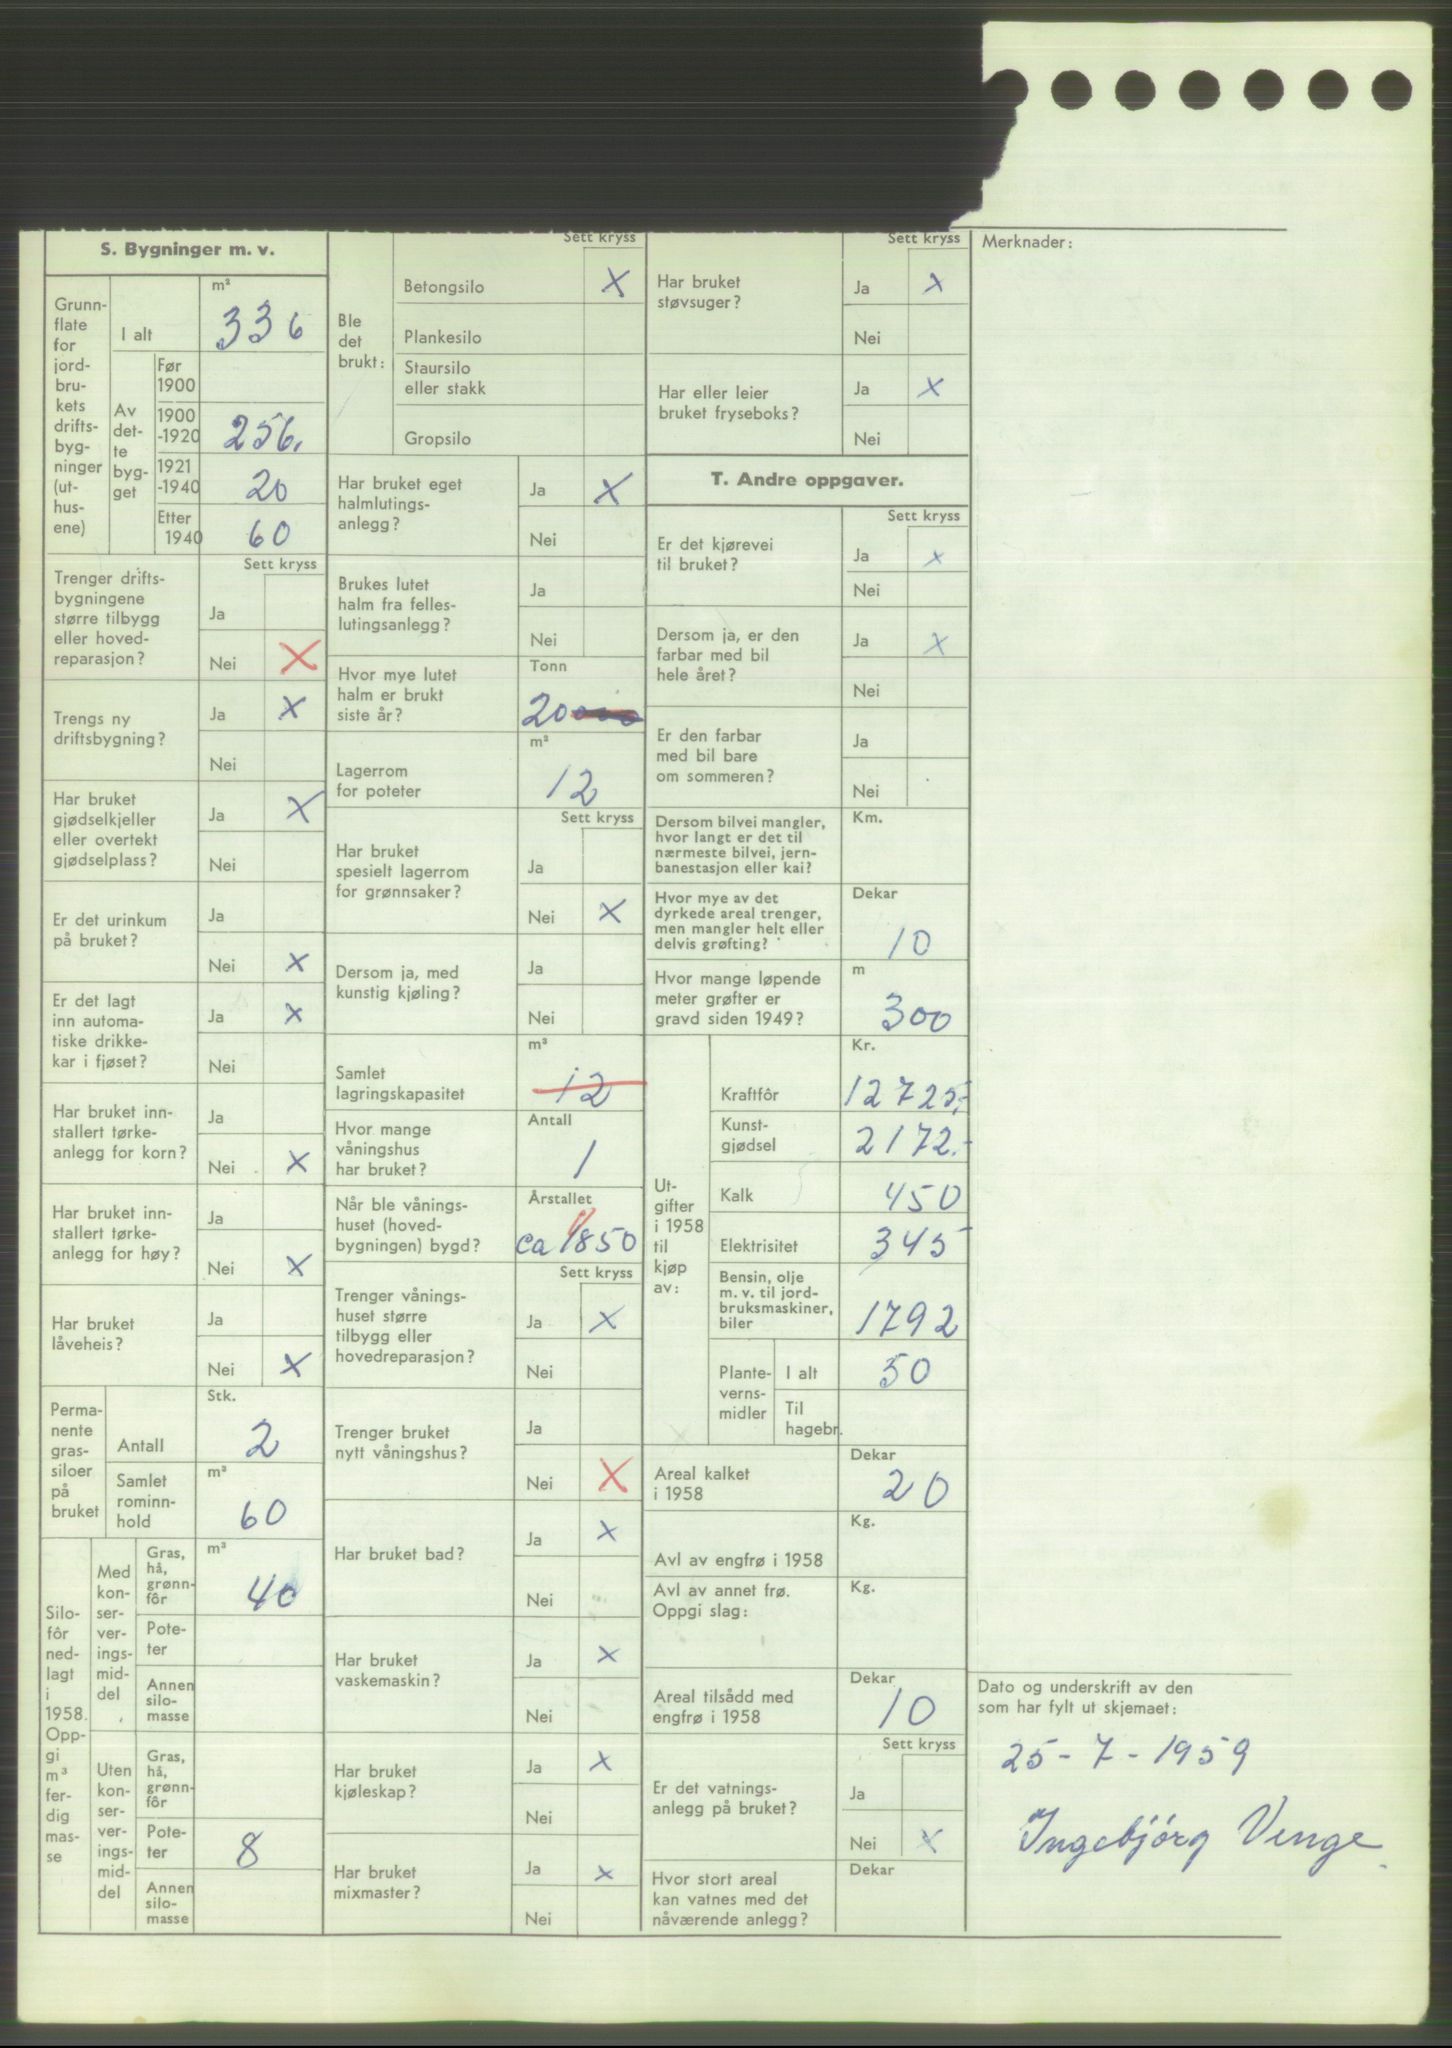 S. Bygninger m. v.
Grunn-
flate
for
jord-
bru-
kets
drifts-
byg-
ninger
(ut-
hus-
ene)
I alt
m²
336
Av
det-
te
byg-
get
Før
1900
1900
-1920
256.
1921
-1940
20
Etter
1940
60
Sett kryss
Trenger drifts-
bygningene
større tilbygg
eller hoved-
reparasjon?
Ja
Nei X
Trengs ny
driftsbygning?
Ja X
Nei
Har bruket
gjødselkjeller
eller overtekt
gjødselplass?
Ja X
Nei
Er det urinkum
på bruket?
Ja
Nei X
Er det lagt
inn automa-
tiske drikke-
kar i fjøset?
Ja X
Nei
Har bruket inn-
stallert tørke-
anlegg for korn?
Ja
Nei X
Har bruket inn-
stallert tørke-
anlegg for høy?
Ja
Nei X
Har bruket
låveheis?
Ja
Nei X
Perma-
nente
gras-
siloer
på
bruket
Stk.
Antall 2
Samlet
rominn-
hold
m³
60
Silo-
fôr
ned-
lagt
i
1958.
Opp-
gi
m³
fer-
dig
mas-
se
Med
kon-
ser-
ver-
ings-
mid-
del
Gras,
hå,
grønn-
fôr
m³
40
Pote-
ter
Annen
silo-
masse
Uten
kon-
ser-
ver-
ings-
mid-
del
Gras,
hå,
grønn-
fôr
Pote-
ter
8
Annen
silo-
masse
Sett kryss
Ble
det
brukt:
Betongsilo X
Plankesilo
Staursilo
eller stakk
Gropsilo
Har bruket eget
halmlutings-
anlegg?
Ja X
Nei
Brukes lutet
halm fra felles-
lutingsanlegg?
Ja
Nei
Hvor mye lutet
halm er brukt
siste år?
Tonn
20
Lagerrom
for poteter
m³
12
Sett kryss
Har bruket
spesielt lagerrom
for grønnsaker?
Ja
Nei X
Dersom ja, med
kunstig kjøling?
Ja
Nei
Samlet
lagringskapasitet
m³
12
Hvor mange
våningshus
har bruket?
Antall
1
Når ble vånings-
huset (hoved-
bygningen) bygd?
Årstallet
ca 1850
Sett kryss
Trenger vånings-
huset større
tilbygg eller
hovedreparasjon?
Ja X
Nei
Trenger bruket
nytt våningshus?
Ja
Nei X
Har bruket bad?
Ja X
Nei
Har bruket
vaskemaskin?
Ja X
Nei
Har bruket
kjøleskap?
Ja X
Nei
Har bruket
mixmaster?
Ja X
Nei
Sett kryss
Har bruket
støvsuger?
Ja X
Nei
Har eller leier
bruket fryseboks?
Ja X
Nei
T. Andre oppgaver.
Sett kryss
Er det kjørevei
til bruket?
Ja X
Nei
Dersom ja, er den
farbar med bil
hele året?
Ja X
Nei
Er den farbar
med bil bare
om sommeren?
Ja
Nei
Dersom bilvei mangler,
hvor langt er det til
nærmeste bilvei, jern-
banestasjon eller kai?
Km.
Hvor mye av det
dyrkede areal trenger,
men mangler helt eller
delvis grøfting?
Dekar
10
Hvor mange løpende
meter grøfter er
gravd siden 1949?
m
300
Ut-
gifter
i 1958
til
kjøp
av:
Kr.
Kraftfôr 12725,-
Kunst-
gjødsel 2172.-
Kalk 450
Elektrisitet 345
Bensin, olje
m. v. til jord-
bruksmaskiner,
biler
1792
Plante-
verns-
midler
I alt 50
Til
hagebr.
Areal kalket
i 1958
Dekar
20
Avl av engfrø i 1958
Kg.
Avl av annet frø.
Oppgi slag:
Kg.
Areal tilsådd med
engfrø i 1958
Dekar
10
Sett kryss
Er det vatnings-
anlegg på bruket?
Ja
Nei X
Hvor stort areal
kan vatnes med det
nåværende anlegg?
Dekar
Merknader:
Dato og underskrift av den
som har fylt ut skjemaet:
25-7-1959
Ingebjórg Venge